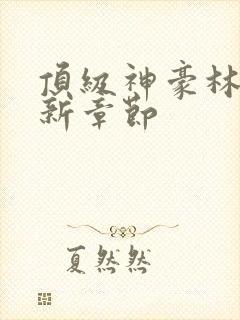 頂級神豪林
新章節
夏然然